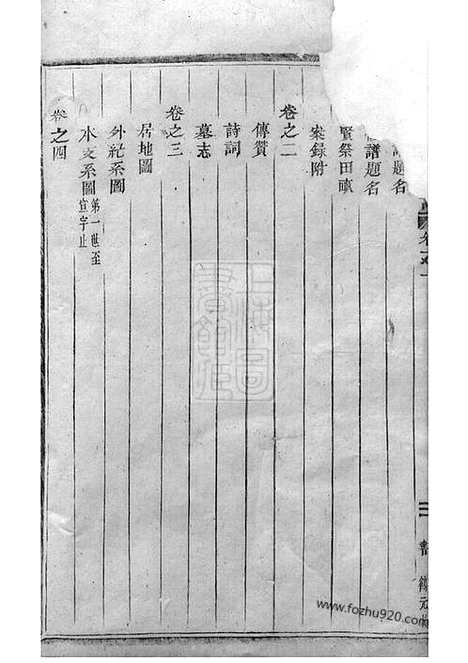 題名
譜題名
賢祭田畝
案録附
卷之二
傳贊
詩詞
墓志
卷之三
居地圖
外紀系圖
水文系圖 第一世至宣字止
卷之四
卷之一
三
上海圖書館藏
www.fozhu920.com